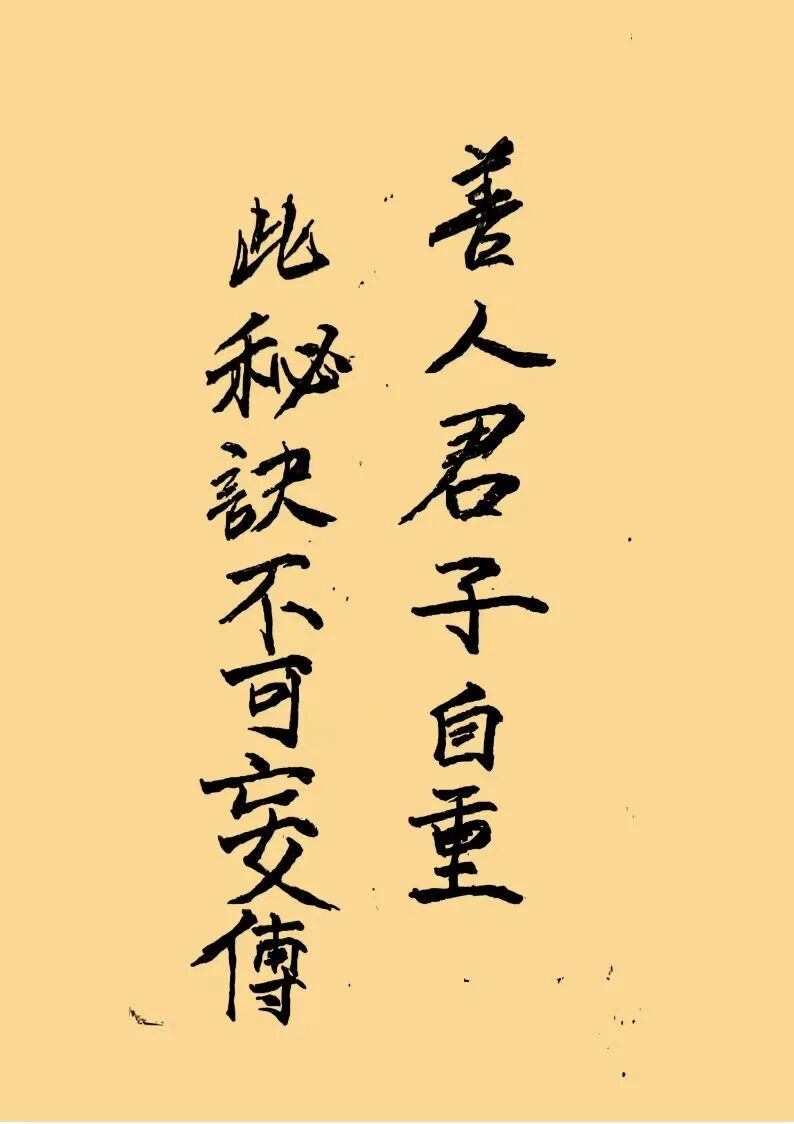 善人君子自重
此秘訣不可妄傳